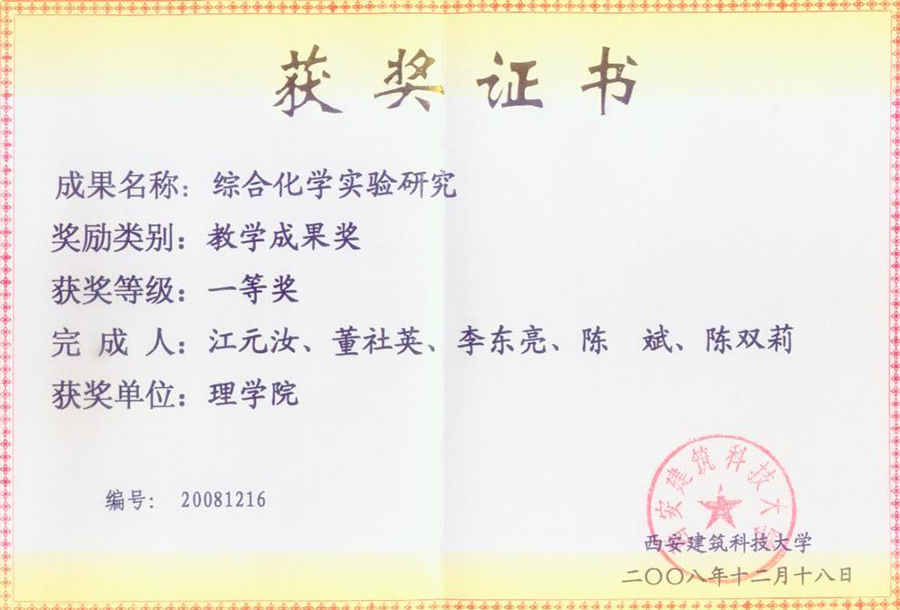 获奖证书
成果名称：综合化学实验研究
奖励类别：教学成果奖
获奖等级：一等奖
完成人：江元汝、董社英、李东亮、陈 斌、陈双莉
获奖单位：理学院
编号：20081216
西安建筑科技大学
西安建筑科技大学
二〇〇八年十二月十八日